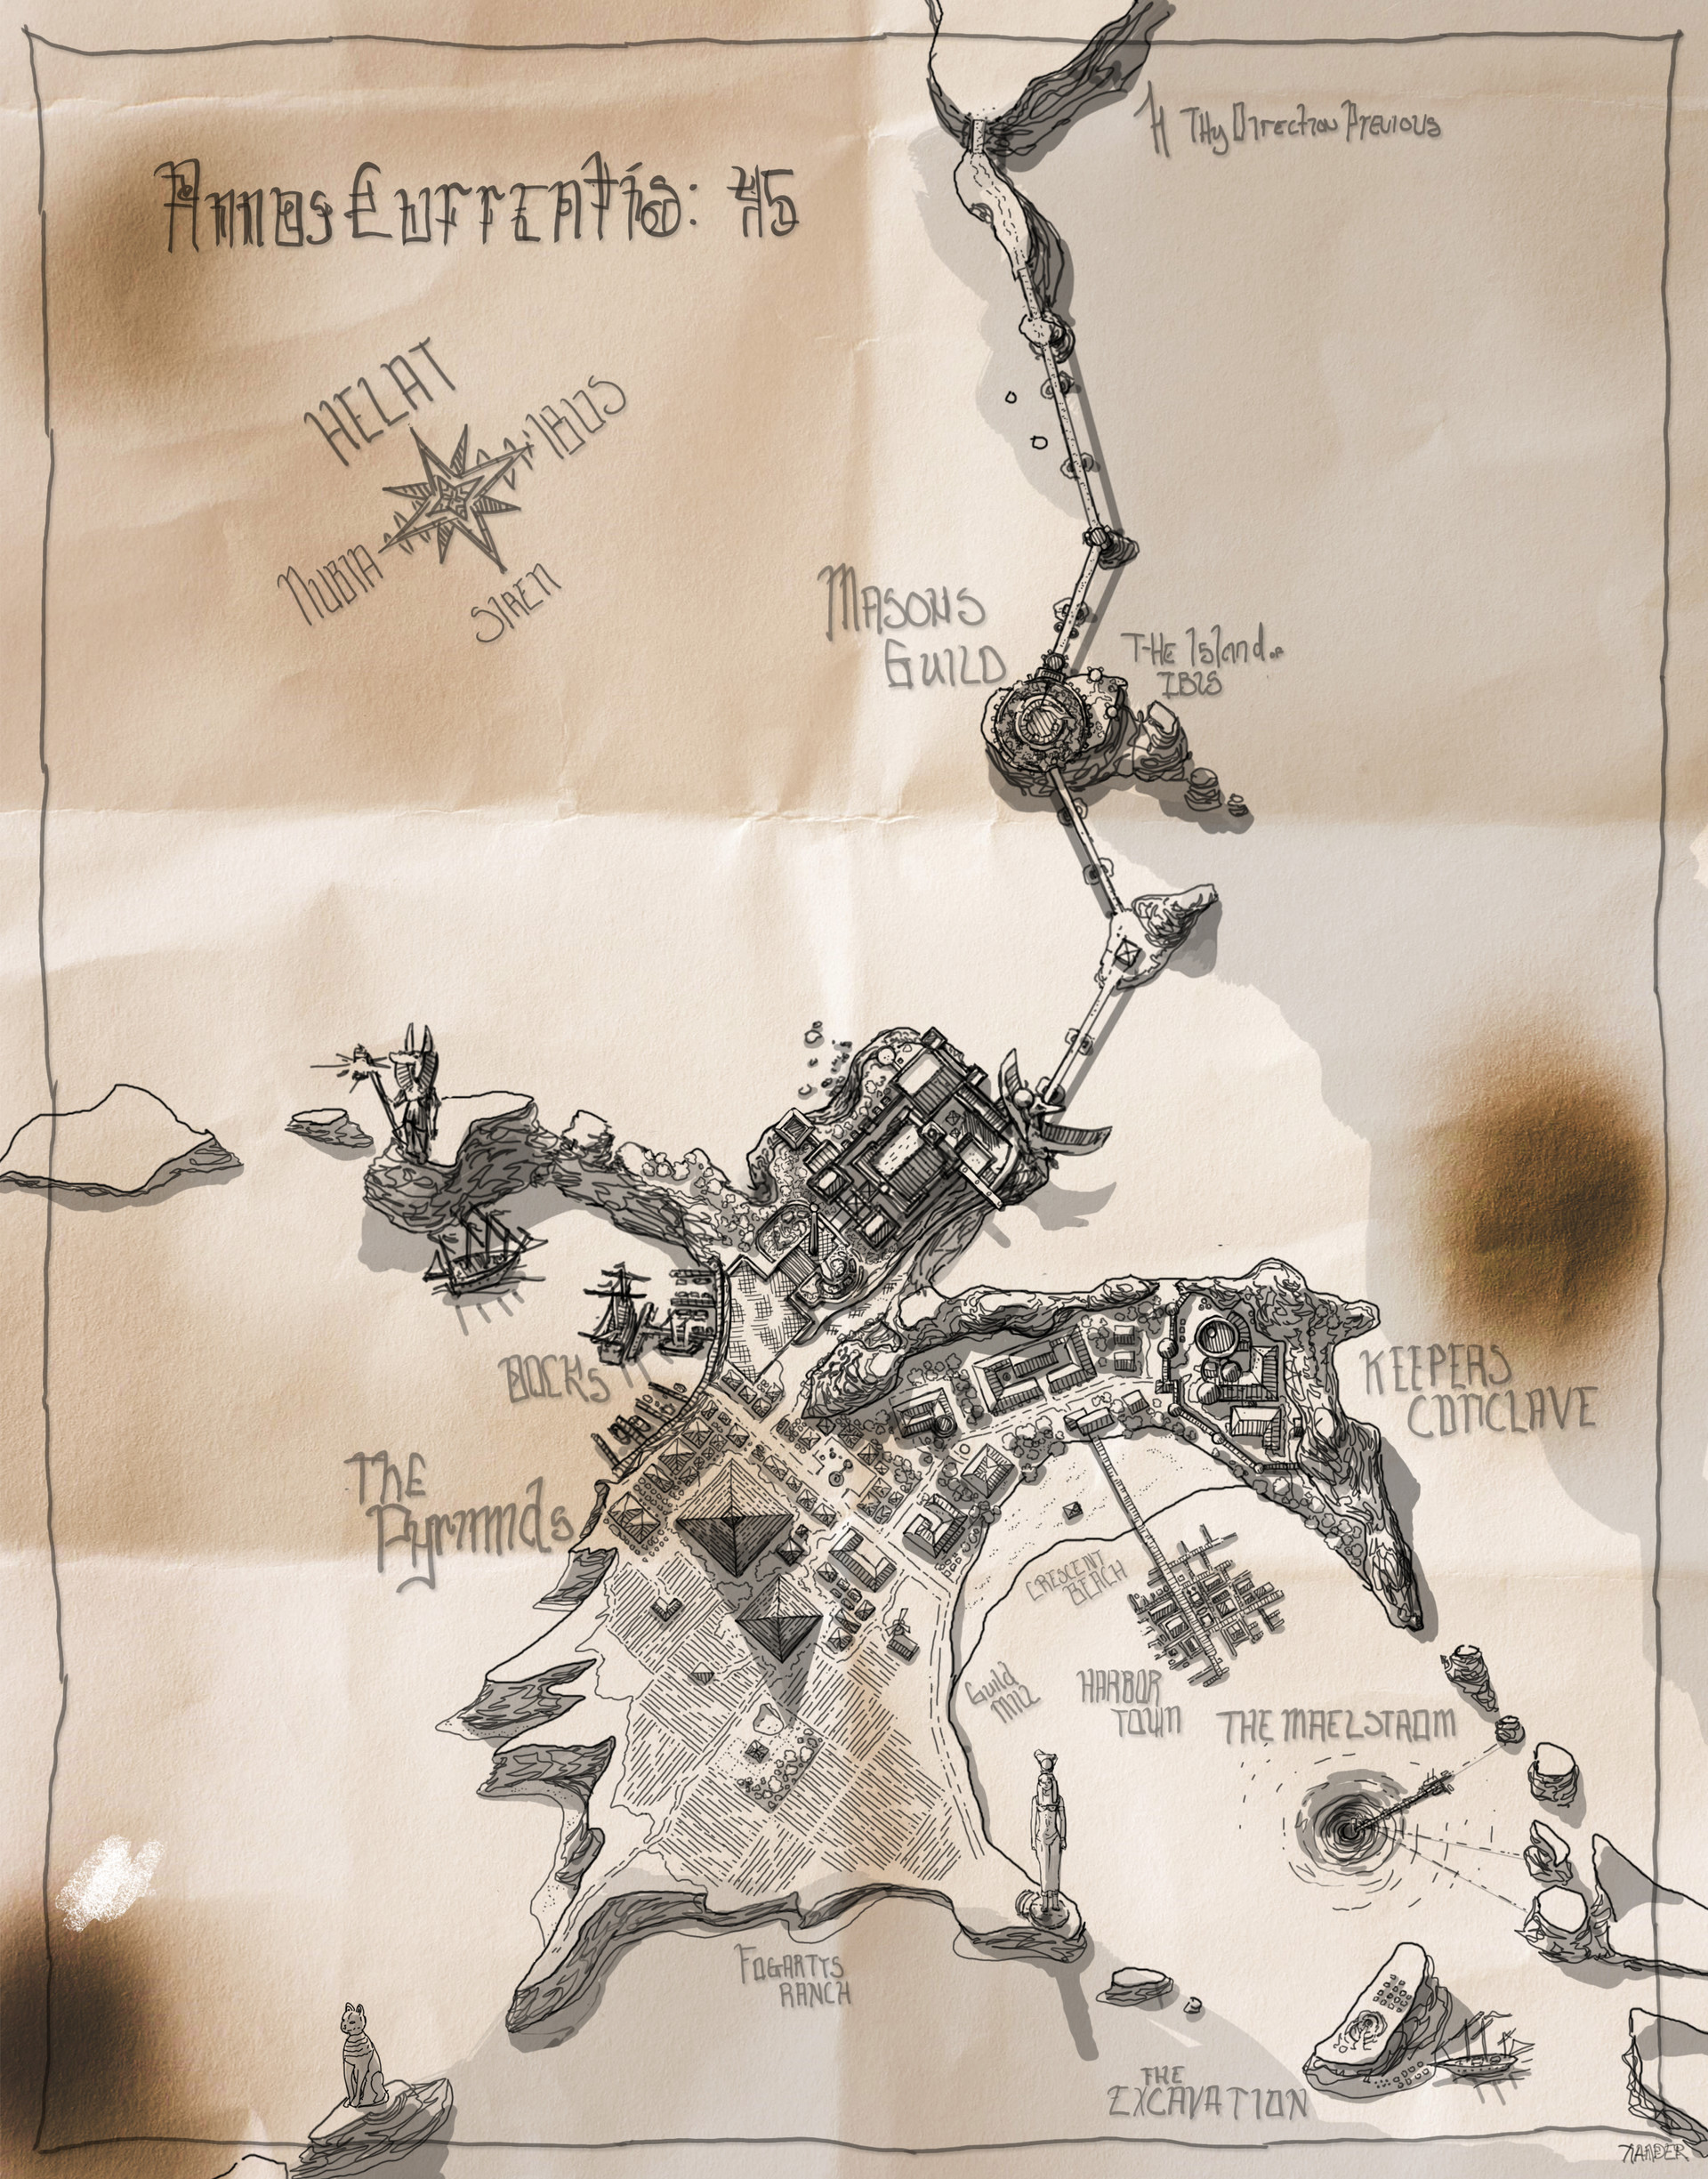 Thy Direction Previous
Annus Currentis: 45
HELAT
IBUS
NUBIA
SIREN
MASONS
GUILD
THE Island of
IBIS
DOCKS
KEEPERS
CONCLAVE
THE
Pyramids
CRESCENT
BEACH
Guild
Mill
HARBOR
TOWN
THE MAELSTROM
FOGARTYS
RANCH
THE
EXCAVATION
XANDER